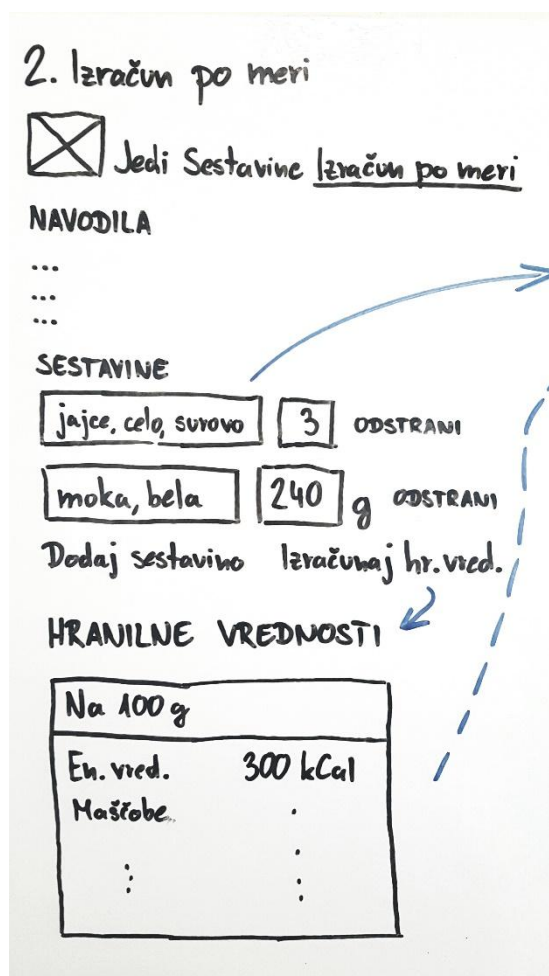 2. Izračun po meri
Jedi Sestavine Izračun po meri
NAVODILA
...
...
...
SESTAVINE
jajce, celo, surovo 3 ODSTRANI
moka, bela 240 g ODSTRANI
Dodaj sestavino Izračunaj hr. vred.
HRANILNE VREDNOSTI
Na 100 g
En. vred. 300 kCal
Maščobe .